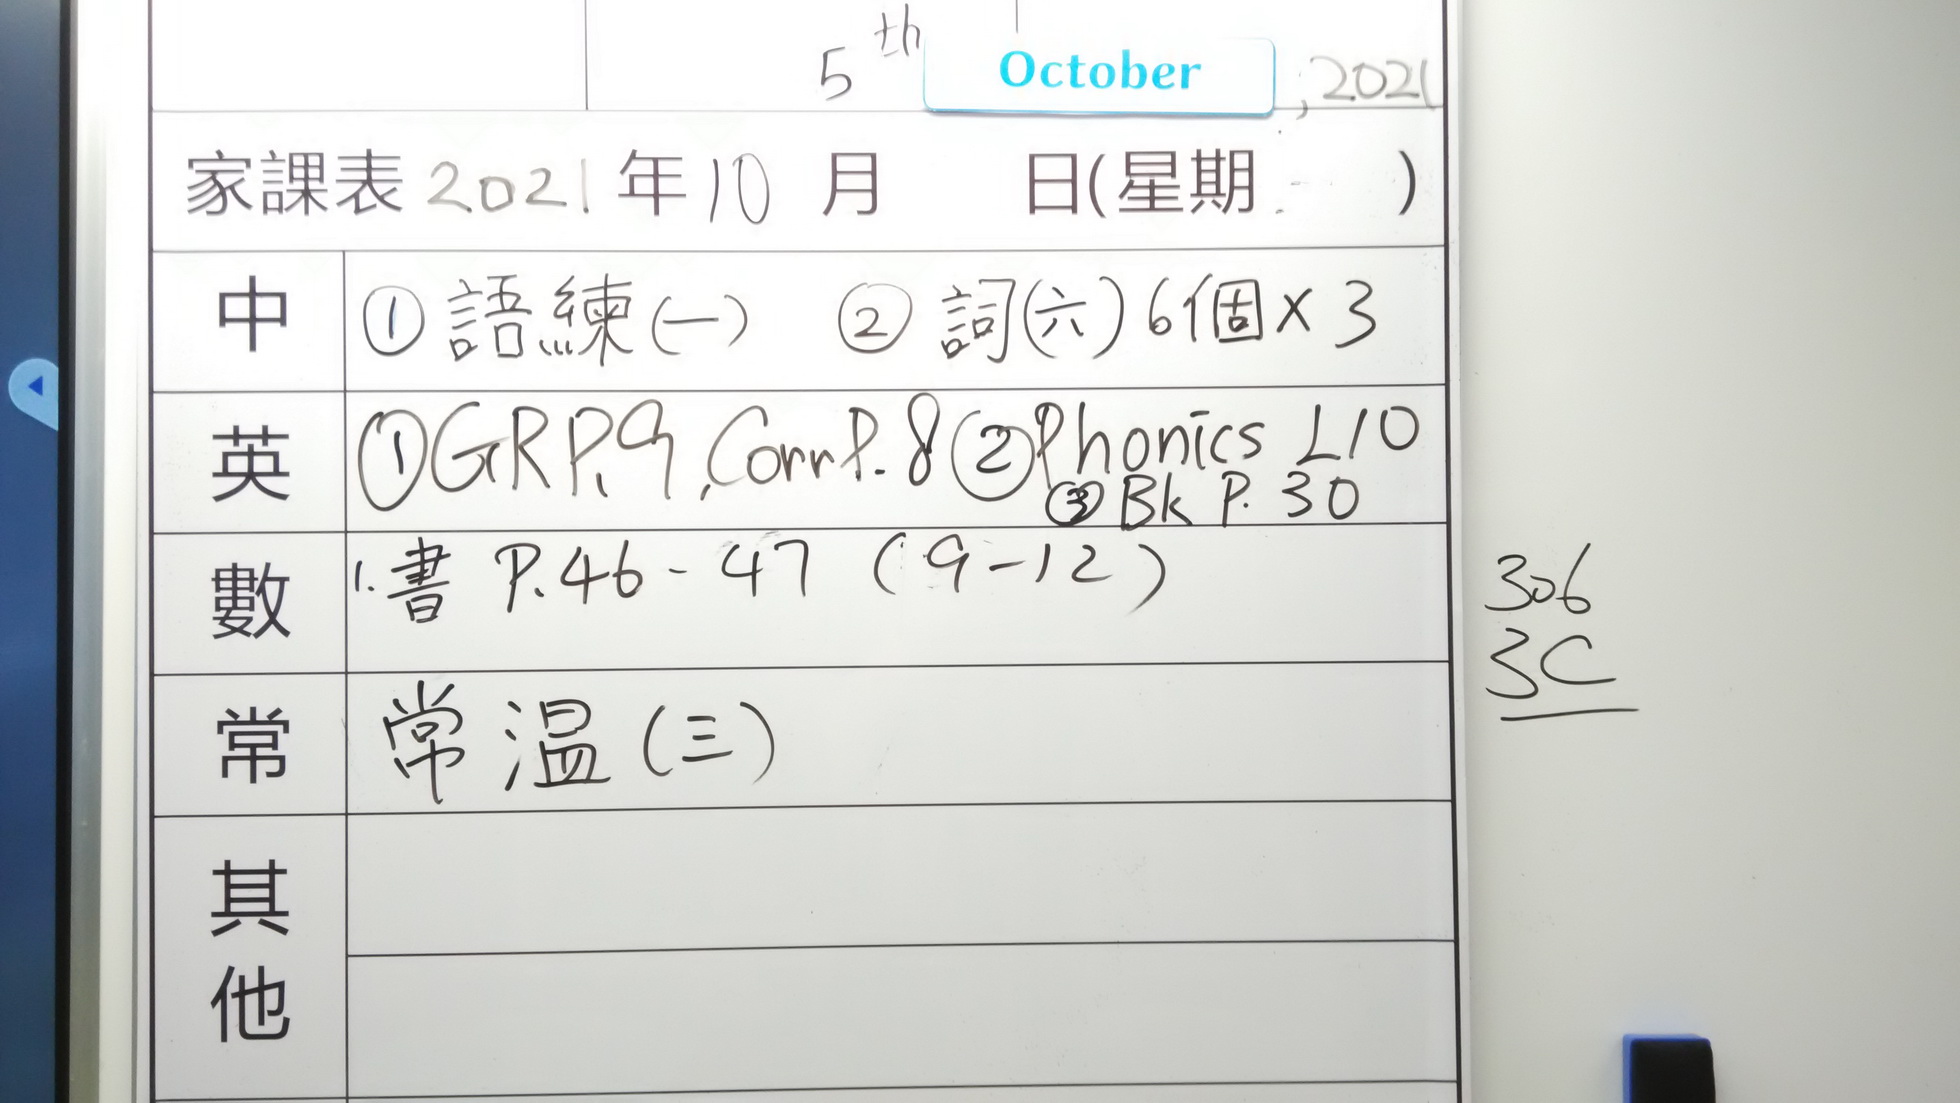 5th October, 2021
家課表 2021 年 10 月 日(星期 )
中 ① 語練(一) ② 詞(六) 6個 x 3
英 ① GR P.9, Corr P.8 ② Phonics L10
③ Bk P. 30
數 1. 書 P.46 - 47 (9-12)
306
3C
常 常溫(三)
其他